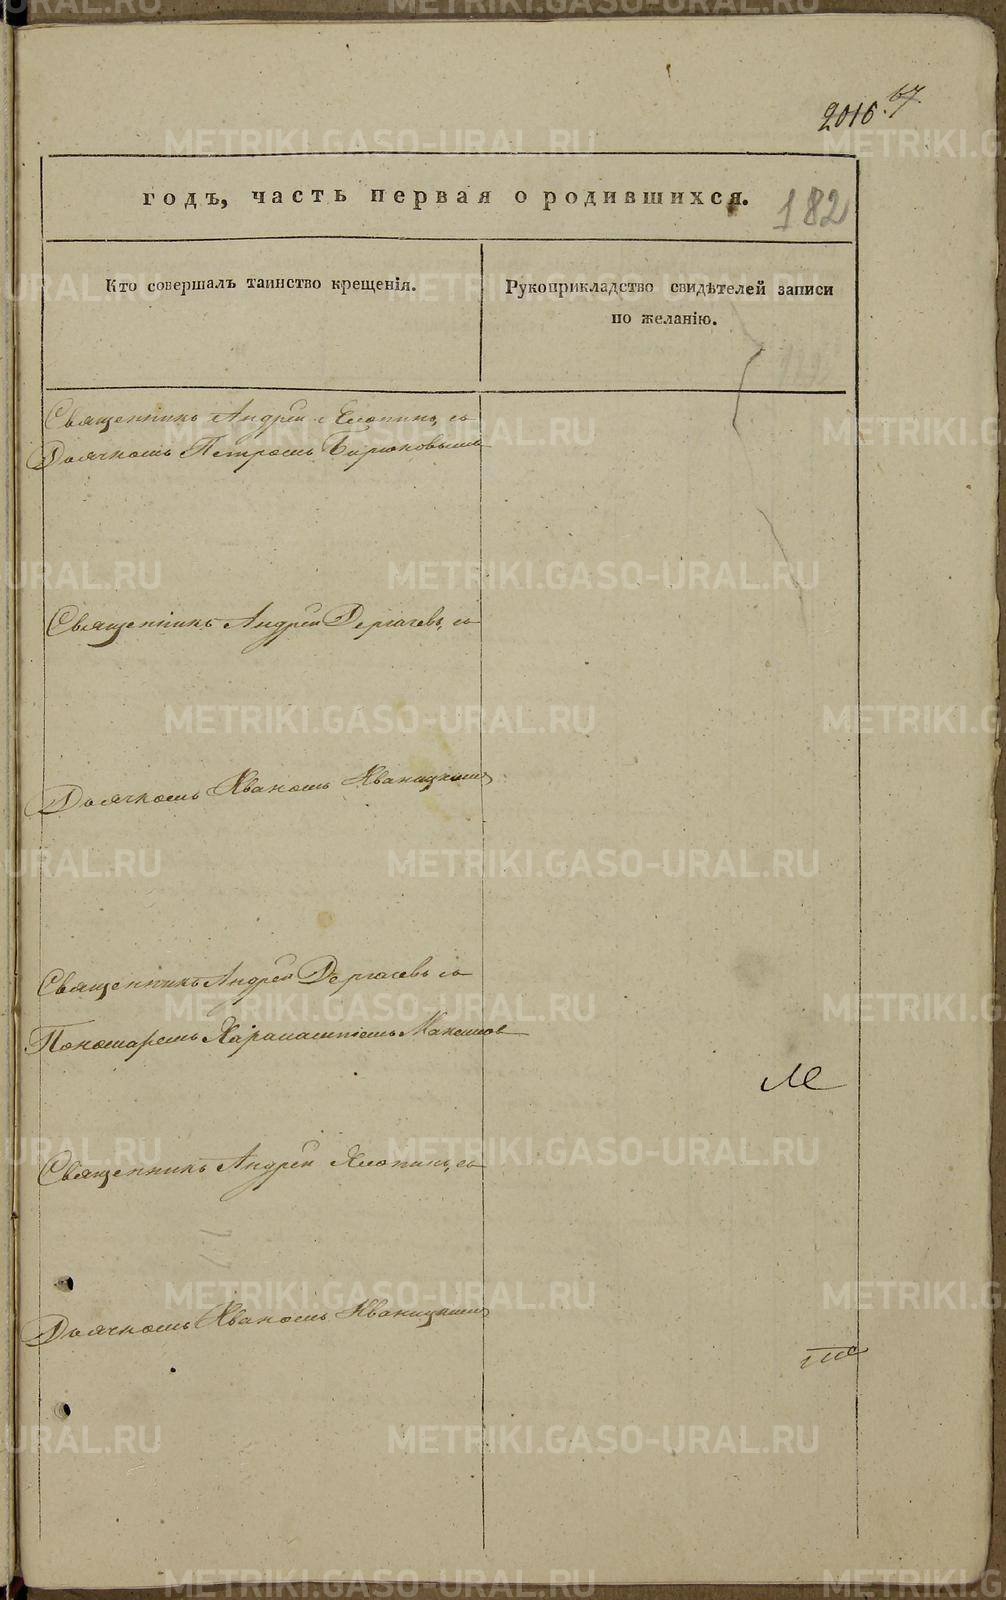 2016. 67.
годъ, часть первая о родившихся.
182
Кто совершалъ таинство крещенія.
Рукоприкладство свидѣтелей записи
по желанію.
Священникъ Андрей Хлопинъ, съ
Дьячкомъ Петромъ Бирюковымъ
Священникъ Андрей Дергачевъ, съ
Дьячкомъ Иваномъ Иваницкимъ
Священникъ Андрей Дергачевъ съ
Пономаремъ Харлампіемъ Максимов
Священникъ Андрей Хлопинъ, съ
Дьячкомъ Иваномъ Иваницкимъ
METRIKI.GASO-URAL.RU